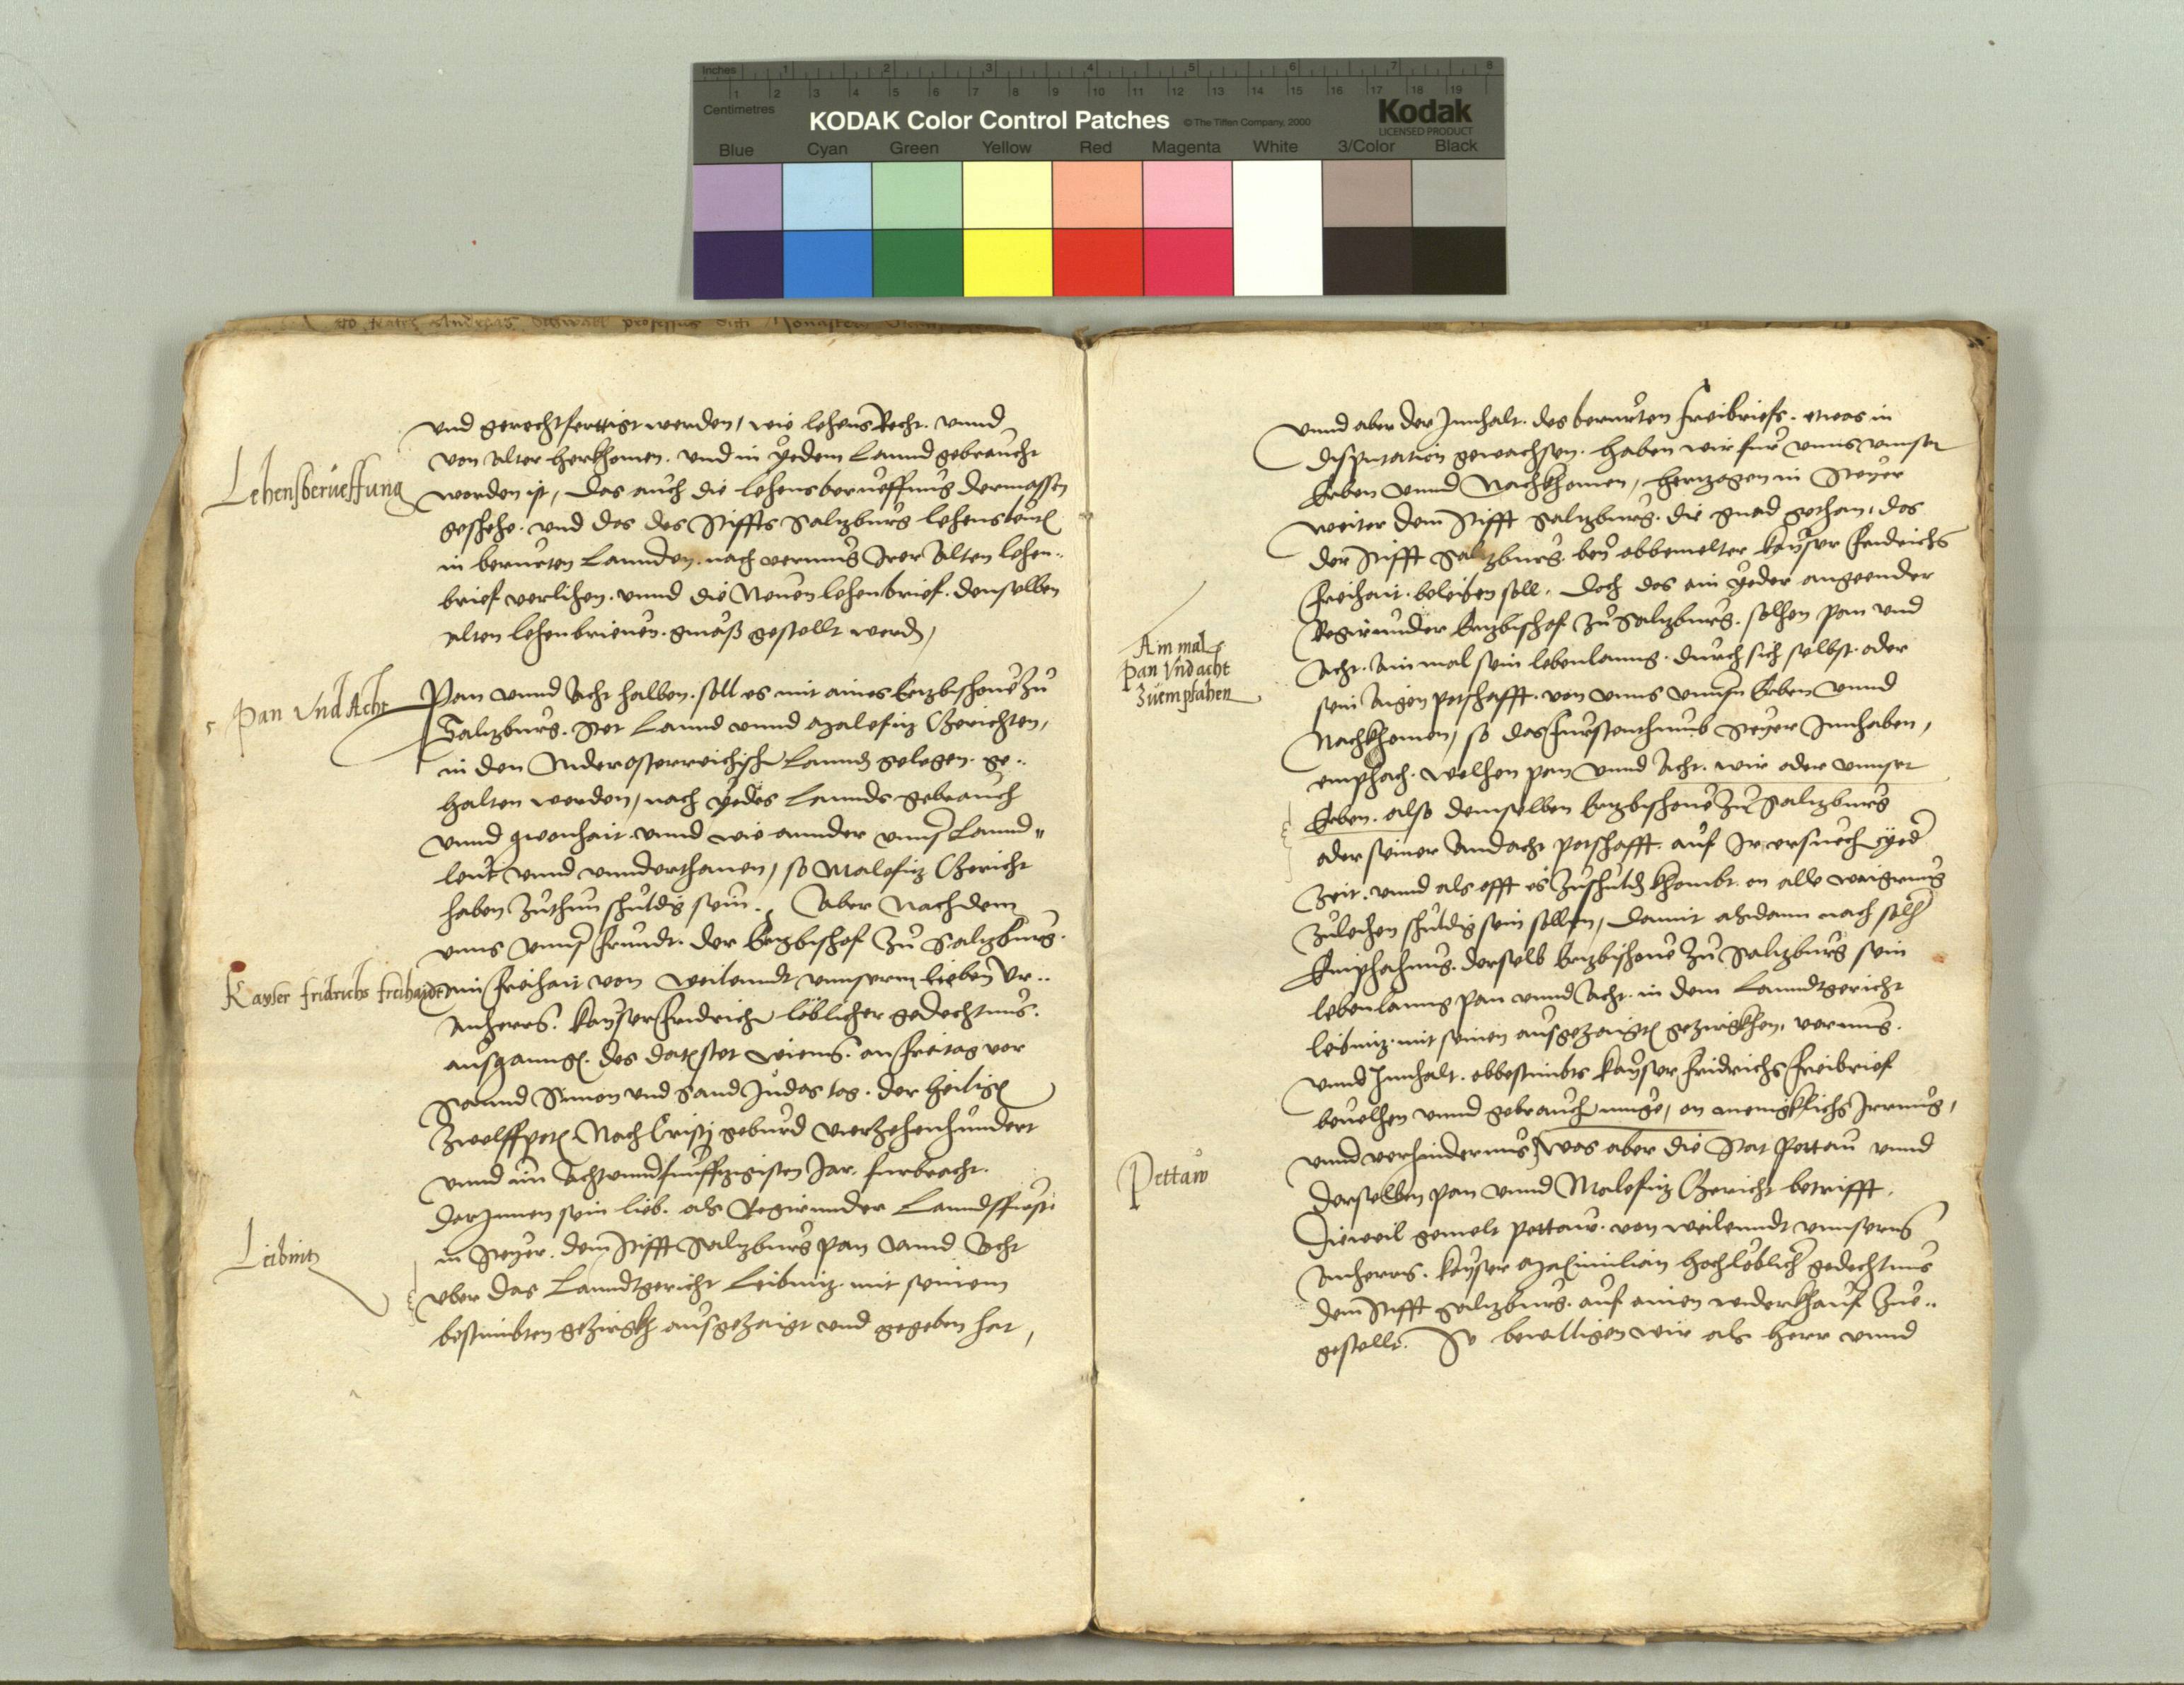 Inches 1 2 3 4 5 6 7 8
Centimetres 1 2 3 4 5 6 7 8 9 10 11 12 13 14 15 16 17 18 19
KODAK Color Control Patches © The Tiffen Company, 2000 Kodak
LICENSED PRODUCT
Blue Cyan Green Yellow Red Magenta White 3/Color Black
vnd gerechtferttigt werden, wie lehens Recht. vnnd
von alter herkhomen. vnd in yedem Lannd gebraucht
Lehensberueffung
worden ist, Das auch die lehensberueffung dermassen
geschehe. vnd das des Stiffts Saltzburg lehensleut
in berurten Lannden. nach vermug Irer alten lehen-
brief verlihen. vnnd die Neuen lehenbrief. denselben
alten lehenbrieuen. gmäß gestellt werd,
Pan Vnd Acht
Pan vnnd Acht halben. soll es mit aines Ertzbischoue zu
Saltzburg. Stet Lannd vnnd Malefitz Gerichten,
in den Nderosterreichisch Lannd gelegen. ge-
halten werden, nach yedes Lannds gebrauch
vnnd gwonhait. vnnd wie annder vnns Lannd-
leut vnnd vnnderthanen, so Malefitz Gericht
haben zuthun schuldig sein. Aber Nachdem
vnns vnns freundt. der Ertzbischof zu Saltzburg.
Kayser fridrichs freihait
ain freihait von weilenndt vnnserm lieben Vr-
Anherrn. Kayser Fridrich löblicher gedechtnus.
ausganng. des dat stet Wienn. an Freitag vor
Sannd Simon vnd Sand Judas tag. der heilig
Zwelffpot. Nach Cristi geburd vierzehenhundert
vnnd im Achtvnndfunffzigisten Jar. furbracht.
Darjnnen sein lieb. als Regirunder Lanndsffurst
in Steyer. dem Stifft Saltzburg Pan vnnd Acht
Leibnitz
vber das Lanndtgericht Leibnitz. mit seinem
bestimbten gezirgkh ausgezaigt vnd gegeben hat,
vnnd aber der Innhalt. des berurten freibriefs. etwas in
disputation gewachsen. haben wir fur vnns vnnser
Erben vnnd Nachkhomen, hertzogen in Steyer
weiter dem Stifft Saltzburg. die gnad gethan. das
der Stifft Saltzburg. bey obbemelter Kayser fridrichs
freihait. beleiben soll. Doch das ein yeder angeender
Regirunder Ertzbischof zu Saltzburg. solhen Pan vnd
Ain mal
Pan Vnd acht
Zuempfahen
Acht. ain mal sein lebenlanng. durch sich selbst. oder
sein aigen potschafft. von vnns vnnsn Erben vnnd
Nachkhomen, so das furstenthumb Steyer Innhaben,
emphach. Welhen pan vnnd Acht. wir oder vnnser
Erben. also demselben Ertzbischoue zu Saltzburg
oder seiner Andacht potschafft. auf Ir ersuech yed
Zeit. vnnd als offt es zuschuld khombt. on alle waigrung
zuleihen schuldig sein sollen, Damit alsdann nach solh
Emphahung. derselb Ertzbischoue zu Saltzburg sein
lebenlanng Pan vnnd Acht. in dem Lanndtgericht
Leibnitz. mit seinen ausgezaigt gezirgkhen. vermug.
vnnd Innhalt. obbestimbts Kayser fridrichs freibrief
beuelhen vnnd gebrauch muge, on menigklichs Irrung,
vnnd verhindernus. was aber die Stat Pettau vnnd
Pettaw
derselben pan vnnd Malefitz Gericht betrifft.
Dieweil gemelt Pettaw. von weilenndt vnnserm
Anherrn. Kayser Maximilian hochlöblich gedechtnus
dem Stifft Saltzburg. auf ainen widerkhauf zue-
gestellt. So bewilligen wir als herr vnnd